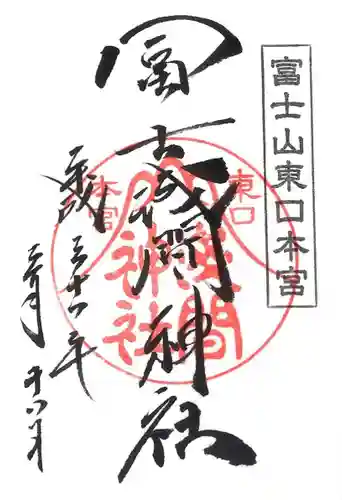 富士山東口本宮
冨士浅間神社
東口
本宮
浅間
神社
平成三十一年